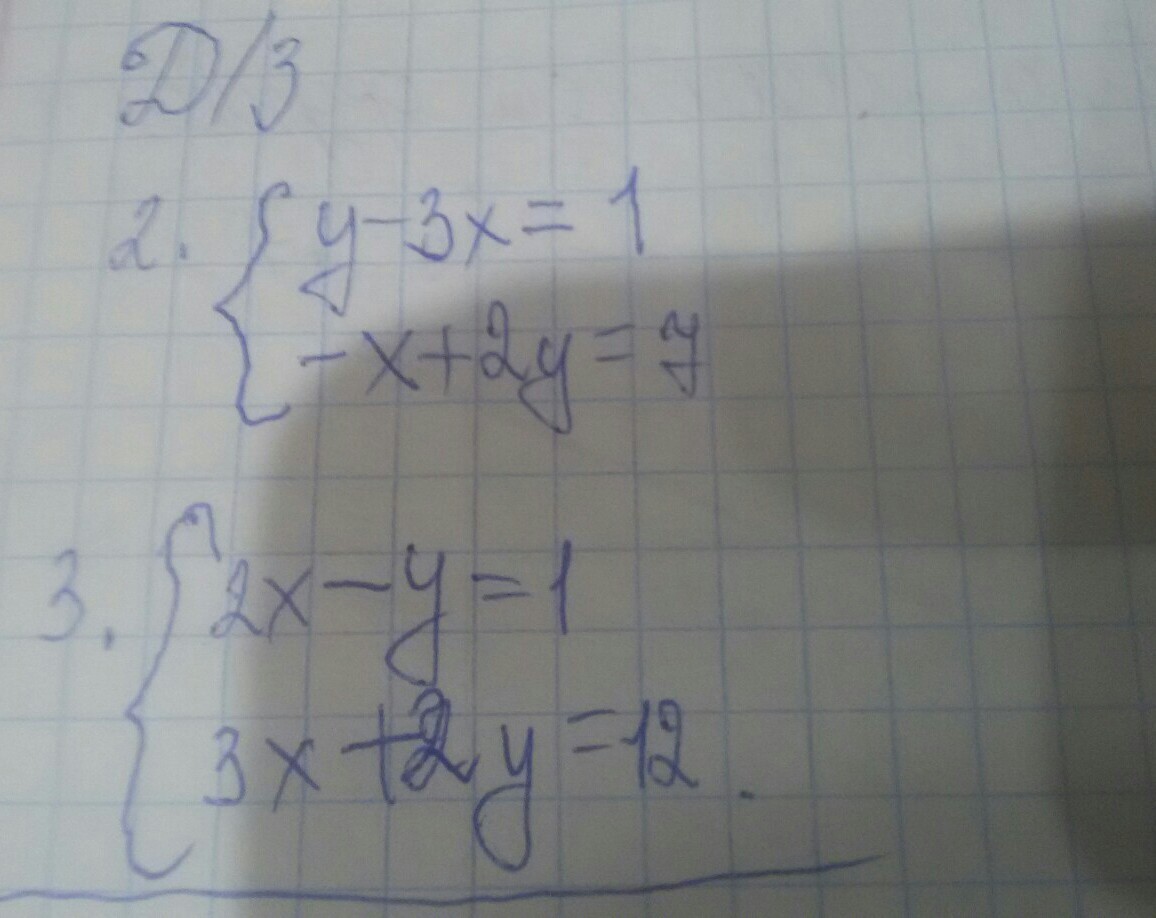 Д/З
2. { y - 3x = 1
- x + 2y = 7
3. { 2x - y = 1
3x + 2y = 12.